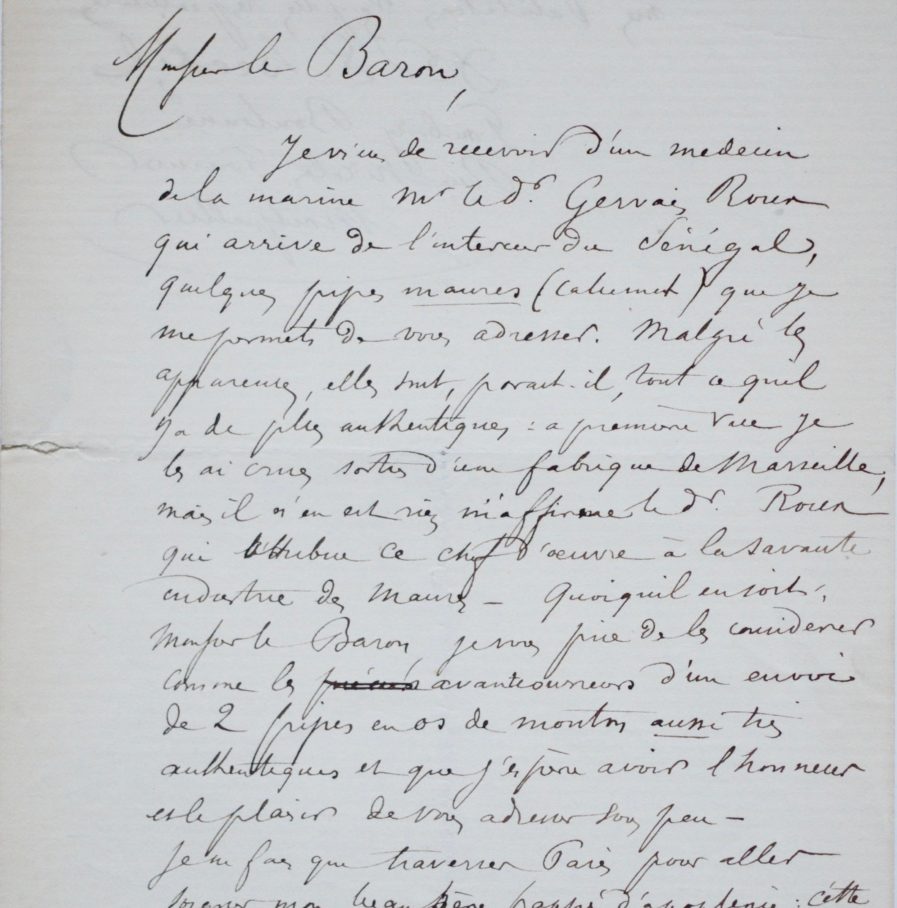 Monsieur le Baron,
Je viens de recevoir d'un medecin
de la marine Mr le dr. Gervais Rouen
qui arrive de l'interieur du Sénégal,
quelques pipes maures (calumet) que je
me permets de vous adresser. Malgré les
apparences, elles sont, parait-il, tout ce quil
ya de plus authentiques : a première vue je
les ai crues sorties d'une fabrique de Marseille,
mais il n'en est rien m'affirme le dr. Rouen
qui attribue ce chef d'œuvre à la savante
industrie des Maures – Quoiquil en soit,
Monsieur le Baron je vous prie de les considerer
comme les avantcoureurs d'un envoi
de 2 pipes en os de mouton aussi très
authentiques et que j'espère avoir l'honneur
et le plaisir de vous adresser sous peu –
Je ne fais que traverser Paris pour aller
soigner mon beau frappé d'apoplexie : cette